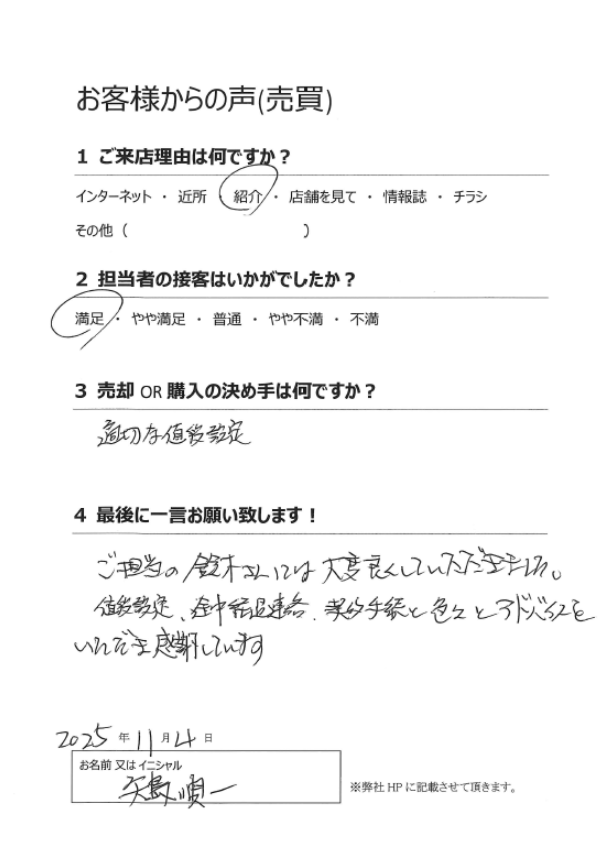 お客様からの声(売買)
1 ご来店理由は何ですか？
インターネット ・ 近所 ・ 紹介 ・ 店舗を見て ・ 情報誌 ・ チラシ
その他（　　　　　　　　　　）
2 担当者の接客はいかがでしたか？
満足 ・ やや満足 ・ 普通 ・ やや不満 ・ 不満
3 売却 OR 購入の決め手は何ですか？
適切な値段設定
4 最後に一言お願い致します！
ご担当の鈴木さんには大変良くしていただきました。
値段設定、途中経過連絡、契約手続と色々とアドバイスを
いただき感謝しています
2025 年 11 月 4 日
お名前 又は イニシャル
矢島 順一
※弊社 HP に記載させて頂きます。